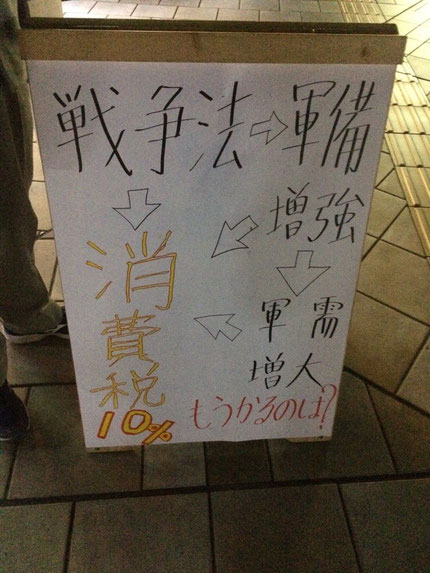 戦争法⇨軍備
増強
軍需
増大
消費税
10%
もうかるのは?